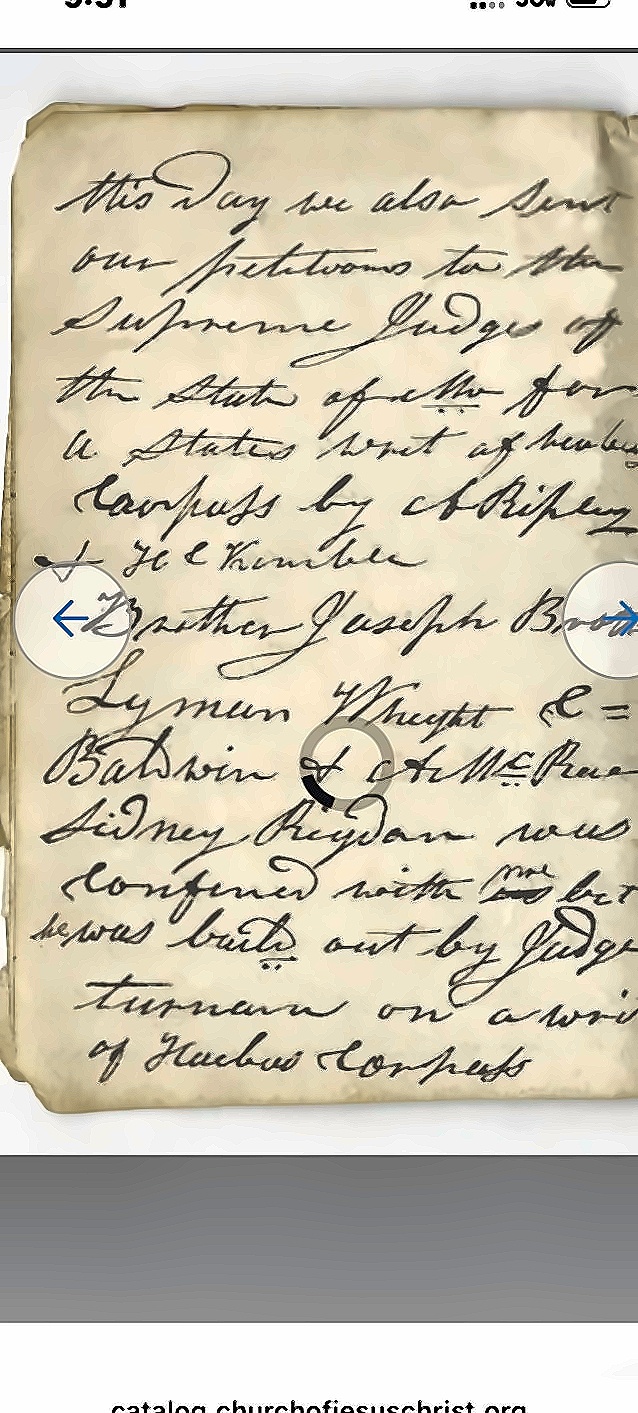 this Day we also sent
our petitions to the
Supreme Judges of
the State of Mo for
a States writ of
Corpuss by A Ripley
& H C Kimble
Brother Joseph
Lyman Whight C =
Baldwin & A McRae
Sidney Rigdon was
confined with me but
he was baild out by Judge
turnam on a wri
of Haebas Corpuss
catalog.churchofjesuschrist.org